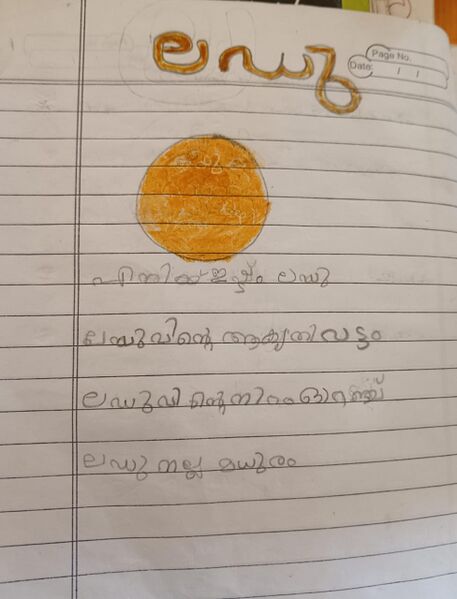 ലഡു
Page No.
Date:
എനിക്ക് ഇഷ്ടം ലഡു
ലഡുവിന്റെ ആകൃതി വട്ടം
ലഡുവിന്റെ നിറം ഓറഞ്ച്
ലഡു നല്ല മധുരം